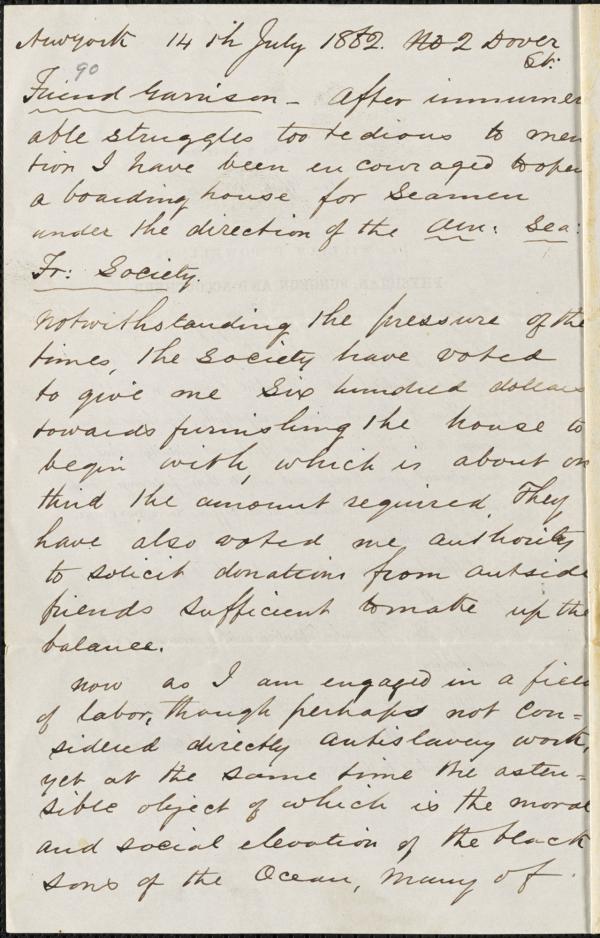 New york 14th July 1862. No 2 Dover
St:
90
Friend Garrison - After innumer
able struggles too tedious to men
tion I have been encouraged to open
a boarding house for Seamen
under the direction of the Am: Sea:
Fr: Society
Notwithstanding the pressure of the
times, the Society have voted
to give me Six hundred dollars
towards furnishing the house to
begin with, which is about on
third the amount required. They
have also voted me authority
to solicit donations from outside
friends sufficient to make up the
balance.
Now as I am engaged in a field
of labor, though perhaps not Con=
sidered directly Antislavery work,
yet at the same time the osten=
sible object of which is the moral
and social elevation of the black
sons of the Ocean, Many of